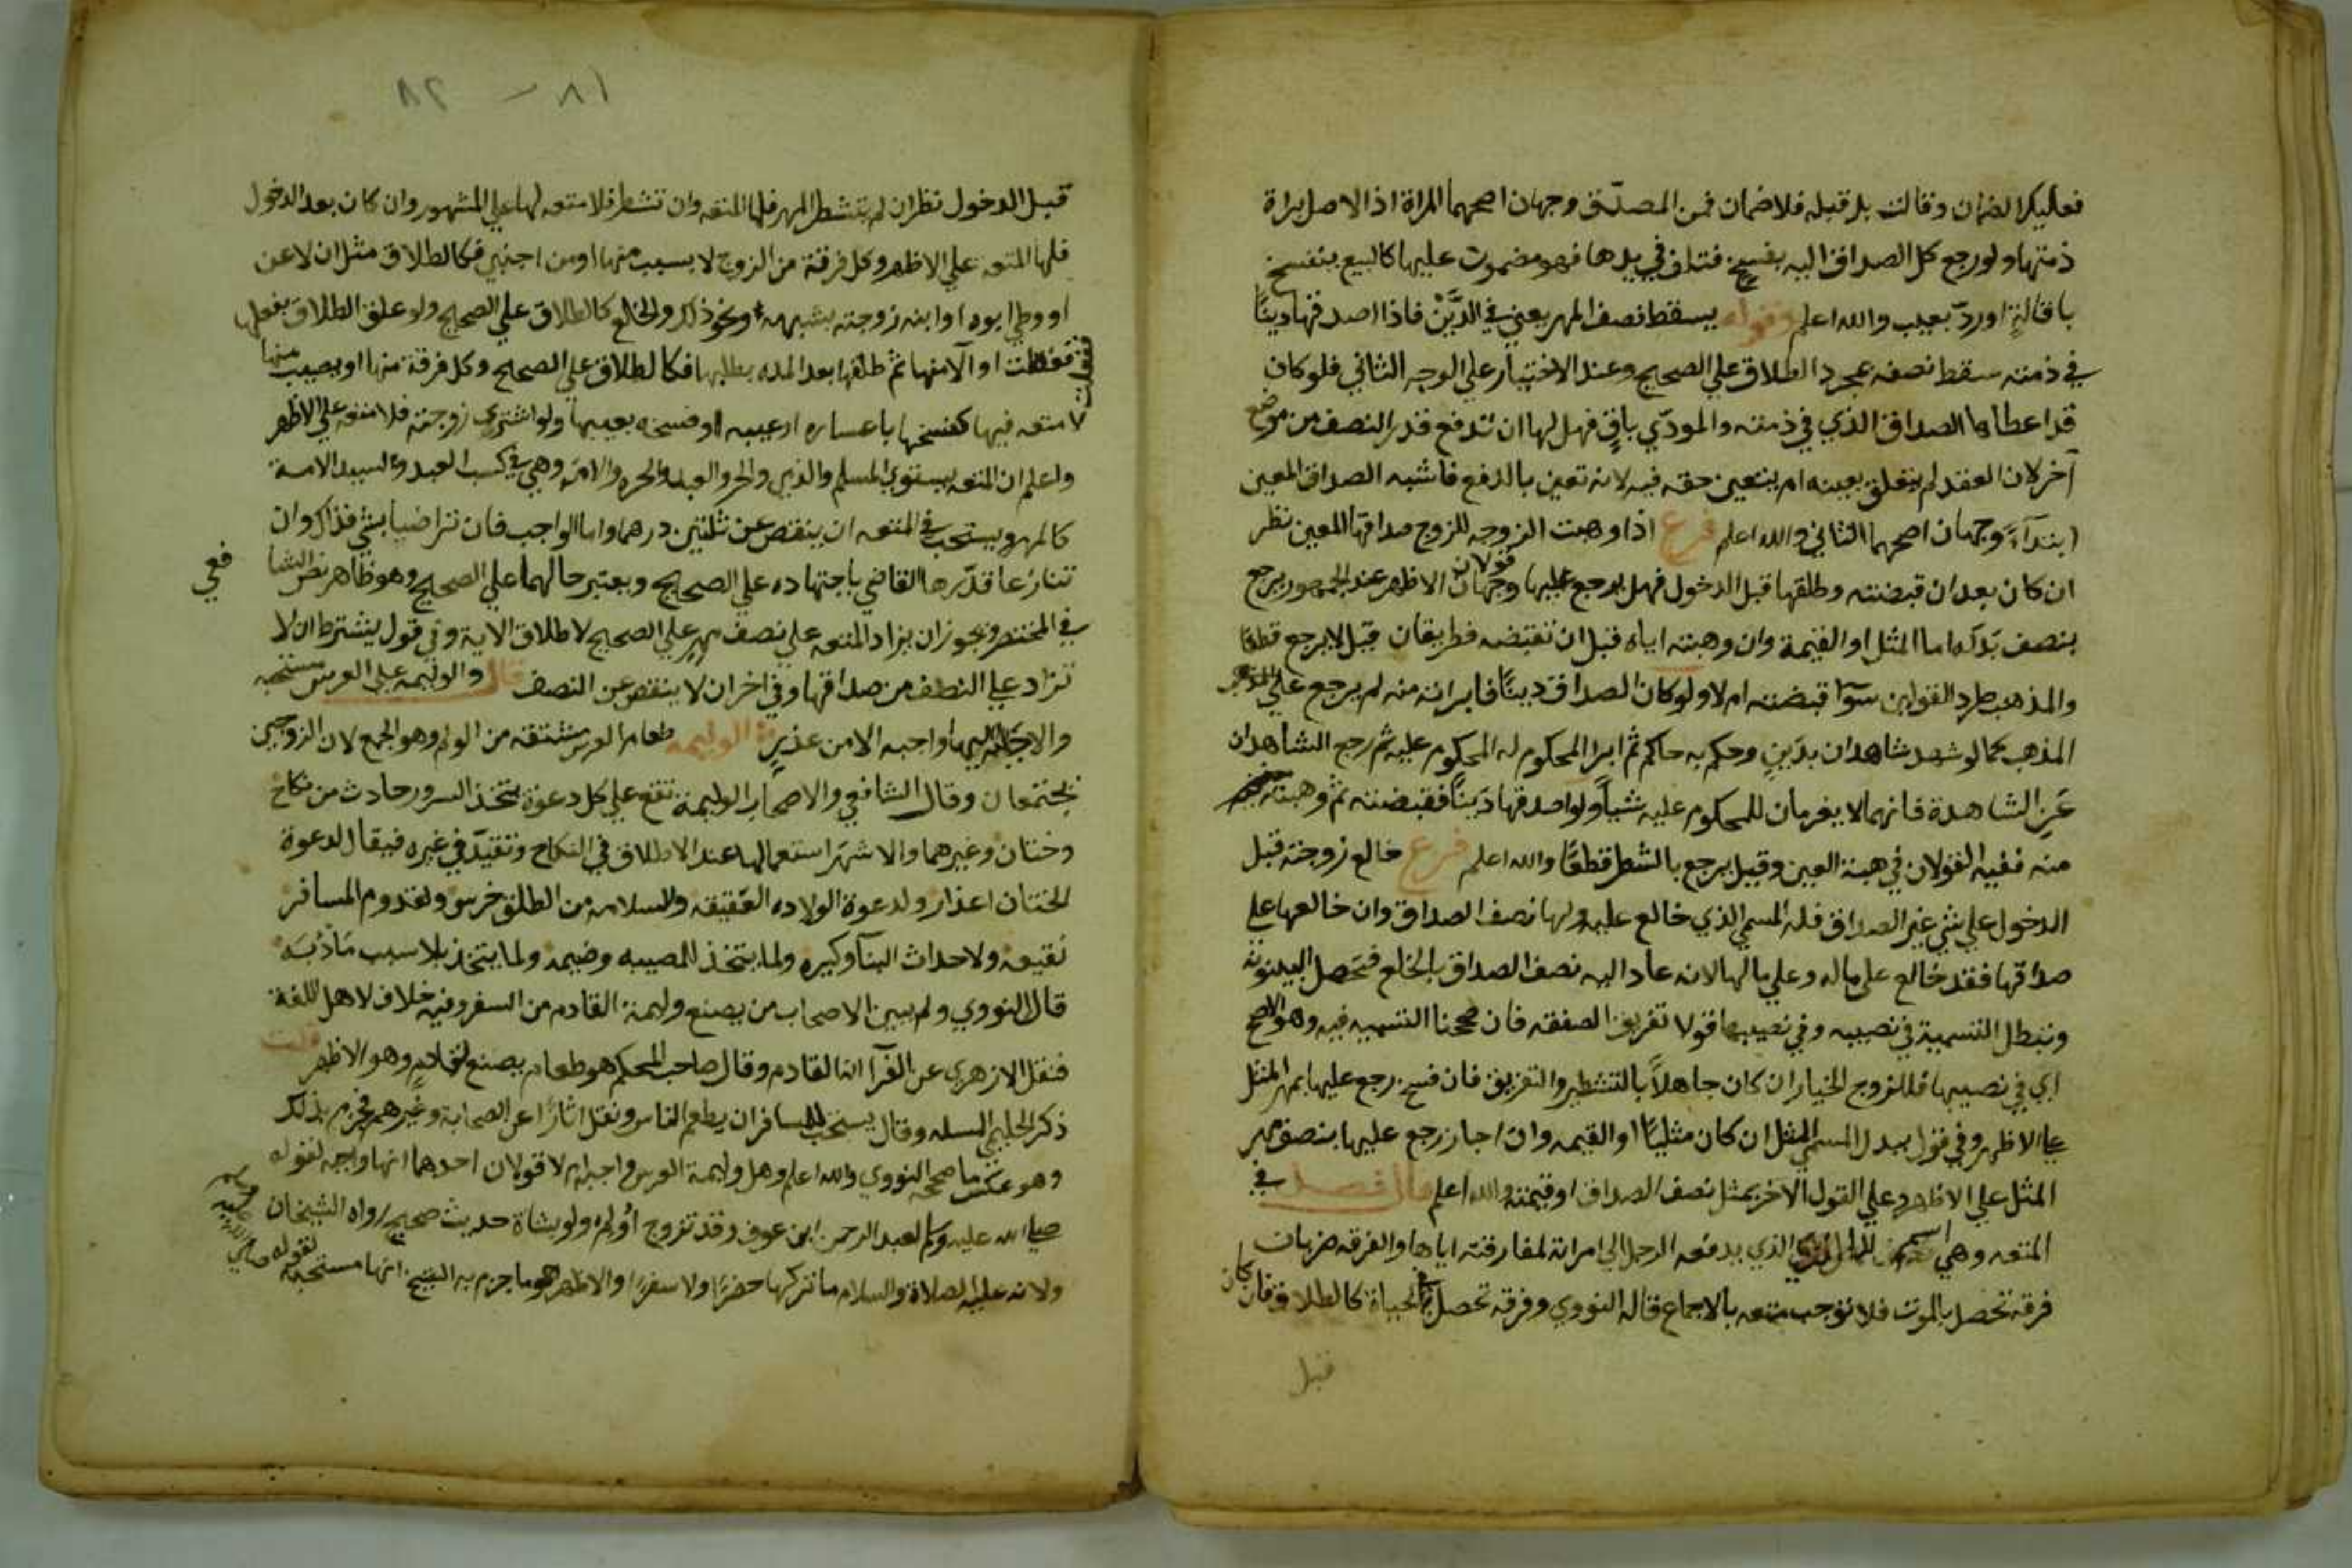 فعليك الضمان وقالت بل قبله فلا ضمان فمن المصدّق وجهان اصحهما المراة اذ الاصل براة
ذمتها ولو رجع كل الصداق اليه بفسخ فتلف في يدها فهو مضمون عليها كالبيع ينفسخ
باقالةٍ او ردّ بعيب والله اعلم وقوله يسقط نصف المهر يعني في الدَّيْن فاذا اصدقها دينًا
في ذمته سقط نصفه بمجرد الطلاق علي الصحيح وعند الاختيار علي الوجه الثاني فلو كان
قد اعطاها الصداق الذي في ذمته والمودّي باقٍ فهل لها ان تدفع قدر النصف من موضع
آخر لان العقد لم يتعلق بعينه ام يتعين حقه فيه لانه تعين بالدفع فاشبه الصداق المعين
ابتدآءً وجهان اصحهما الثاني والله اعلم فرع اذا وهبت الزوجه للزوج صداقها المعين نظر
ان كان بعد ان قبضته وطلقها قبل الدخول فهل يرجع عليها وجهان قولان الاظهر عند الجمهور يرجع
بنصف بَدَله اما المثل او القيمة وان وهبته اياه قبل ان تقبضه فطريقان قيل لا يرجع قطعًا
والمذهب طرد القولين سوآ قبضته ام لا ولو كان الصداق دينًا فابراته منه لم يرجع علي المذهب
المذهب كما لو شهد شاهدان بدَينٍ وحكم به حاكم ثم ابرا المحكوم له المحكوم عليه ثم رجع الشاهدان
عَنِ الشاهدة فانهما لا يغرمان للمحكوم عليه شياً ولو اصدقها دَينًا فقبضته ثم وهبته
منه ففيه القولان في هبة العين وقيل يرجع بالشطر قطعًا والله اعلم فرع خالع زوجته قبل
الدخول علي شي غير الصداق فله المسمي الذي خالع عليه ولها نصف الصداق وان خالعها علي
صداقها فقد خالع علي ماله وعلي مالها لانه عاد اليه نصف الصداق بالخلع فتحصل البينونة
وتبطل التسمية في نصيبه وفي نصيبها قولا تفريق الصفقه فان صححنا التسميه فيه وهو الاصح
اي في نصيبها فللزوج الخيار ان كان جاهلاً بالتشطير والتفريق فان فسخ رجع عليها بمهر المثل
علي الاظهر وفي قول ببدل المسمي المثل ان كان مثليًا او القيمه وان اجاز رجع عليها بنصف مهر
المثل علي الاظهر وعلي القول الاخر بمثل نصف الصداق او قيمته والله اعلم قال فصل في
المتعه وهي اسم الذي يدفعه الرجل الي امراته لمفارقته اياها والفرقه ضربان
فرقه تحصل بالموت فلا توجب متعه بالاجماع قاله النووي وفرقه تحصل في الحياة كالطلاق فان كان
قبل
٨١ - ٨٢
قبل الدخول نظر ان لم يتشطر المهر فلها المتعه وان تشطر فلا متعه لها علي المشهور وان كان بعد الدخول
فلها المتعه علي الاظهر وكل فرقة من الزوج لا بسبب منها او من اجنبي فكالطلاق مثل ان لاعن
او وطي ابوه او ابنه زوجته بشبهه ونحو ذلك والخلع كالطلاق علي الصحيح ولو علق الطلاق بفعلها
ففعلت او آلا منها ثم طلقها بعد المده بطلبها فكالطلاق علي الصحيح وكل فرقة منها او بعيب منها
لا متعه فيها كفسخها باعساره او عيبه او فسخه بعيبها ولو اشتري زوجته فلا متعه علي الاظهر
واعلم ان المتعه يستوي المسلم والذمي والحر والعبد والحره والامه وهي في كسب العبد ولسيد الامة
كالمهر ويستحب في المتعه ان ينقص عن ثلثين درهما واما الواجب فان تراضيا بشي فذاك وان
تنازعا قدّرها القاضي باجتهاده علي الصحيح ويعتبر حالهما علي الصحيح وهو ظاهر نص الشا
فعي
في المختصر ويجوز ان يزاد المتعه علي نصف مهر علي الصحيح لاطلاق الاية وفي قول يشترط ان لا
تزاد علي النصف من صداقها وفي اخر ان لا ينقص عن النصف قال والوليمه علي العرس مستحبه
والاجابة اليها واجبه الا من عذرٍ الوليمه طعام العرس مشتقه من الولم وهو الجمع لان الزوجين
يجتمعان وقال الشافعي والاصحاب الوليمة تقع علي كل دعوة تتخذ لسرور حادث من نكاح
وختان وغيرهما والاشهر استعمالها عند الاطلاق في النكاح وتقيّد في غيره فيقال لدعوة
الختان اعذار ولدعوة الولاده العقيقه وللسلامه من الطلق خرس ولقدوم المسافر
نقيعه ولاحداث البنآ وكيره ولما يتخذ للمصيبه وضيمه ولما يتخذ بلا سبب مَأدُبَه
قال النووي ولم يبين الاصحاب من يصنع وليمة القادم من السفر وفيه خلاف لاهل اللغة
فنقل الازهري عن الفرّآ انها القادم وقال صاحب المحكم هو طعام يصنع لقادمٍ وهو الاظهر قلت
ذكر الحليمي المسله وقال يستحب للمسافر ان يطعم الناس ونقل اثارًا عن الصحابة وغيرهم فجزم بذلك
وهو عكس ما صححه النووي والله اعلم وهل وليمة العرس واجبة ام لا قولان احدهما انها واجبه لقوله
صلي الله عليه وسلم لعبد الرحمن ابن عوف وقد تزوج أَولِم ولو بشاة حديث صحيح رواه الشيخان
ولانه عليه الصلاة والسلام ما تركها حضرًا ولا سفرًا والاظهر هو ما جزم به الشيخ انها مستحبه لقوله صلي
الله عليه وسلم